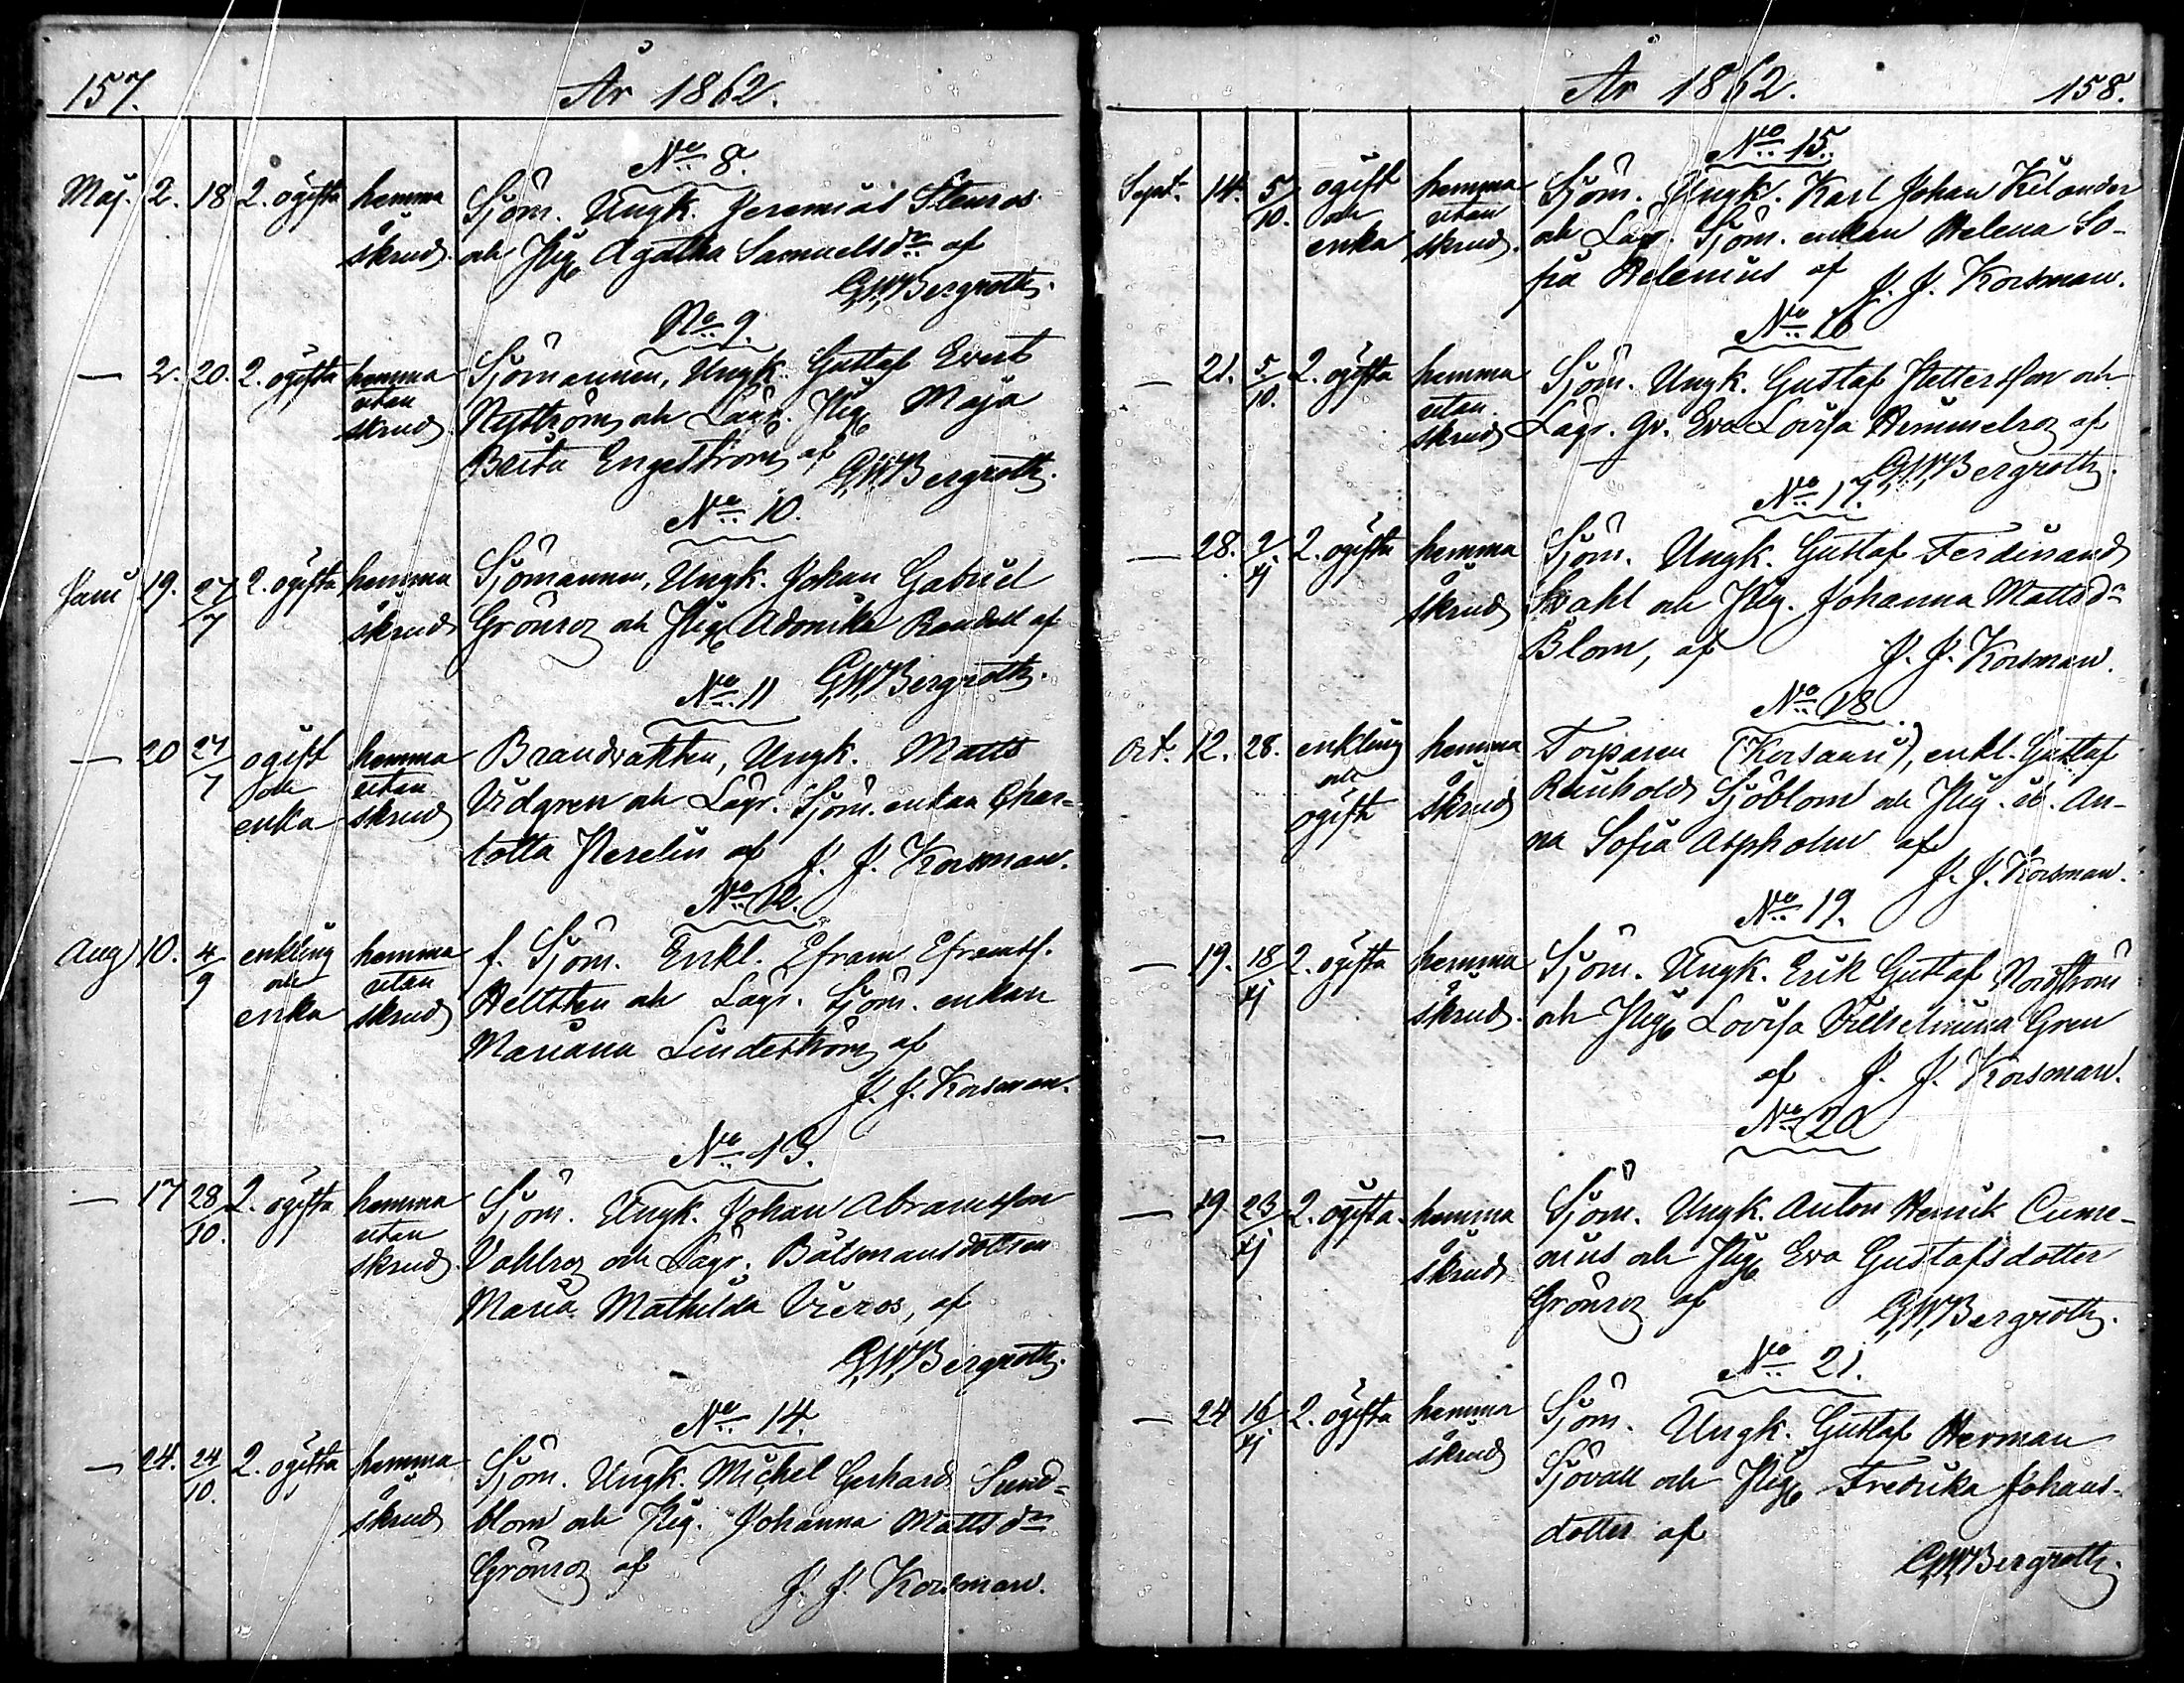 157.
År 1862.
No 8.
Maj. 2. 18 2. ogifta hemma Sjöm. Ungk. Jeremias Stenros
i skrud. och Pig. Agatha Samuelsdr af
GWBergroth.
No 9.
— 2. 20. 2. ogifta hemma Sjömannen, Ungk. Gustaf Evert
utan skrud Nyström och Lägr. Pig. Maja
Brita Engström af GWBergroth.
No 10.
Juni 19. 27/7 2. ogifta hemma Sjömannen, Ungk. Johan Gabriel
i skrud Grönroz och Pig. Adonika Randell af
GWBergroth.
No 11
— 20 27/7 ogift hemma Brandvakten, Ungk. Matts
och utan Vidgren och Lägr. Sjöm. enkan Char-
enka skrud lotta Perelin af J. J. Korsman.
No 12.
Aug 10. 4/9 enkling hemma f. Sjöm. Enkl. Efraim Efraimss.
och utan Hellsten och Lägr. Sjöm. enkan
enka skrud Mariana Lindeström af
J. J. Korsman.
No 13.
— 17 28/10. 2. ogifta hemma Sjöm. Ungk. Johan Abramsson
utan Vahlroz och Lägr. Båtsmansdottren
skrud. Maria Mathilda Vieros, af
GWBergroth.
No 14.
— 24. 24/10. 2. ogifta hemma Sjöm. Ungk. Michel Gerhard Sund-
i skrud blom och Pig. Johanna Mattsdr
Grönroz af J. J. Korsman.
År 1862.
158.
No 15.
Sept. 14. 5/10. ogift hemma Sjöm. Ungk. Karl Johan Kilander
och utan och Lägr. Sjöm. enkan Helena So-
enka skrud. fia Helenius af J. J. Korsman.
No 16
— 21. 5/10. 2. ogifta hemma Sjöm. Ungk. Gustaf Pettersson och
utan skrud Lägr. qv. Eva Lovisa Himmelroz af
GWBergroth.
No 17.
— 28. 2/xj 2. ogifta hemma Sjöm. Ungk. Gustaf Ferdinand
i skrud Stahl och Pig. Johanna Mattsdr
Blom, af J. J. Korsman.
No 18
Oct. 12. 28. enkling hemma Torparen (Korsaari), enkl. Gustaf
och i skrud Reinhold Sjöblom och Pig. åb. An-
ogift na Sofia Aspholm af
J. J. Korsman.
No 19.
— 19. 18/xj 2. ogifta hemma Sjöm. Ungk. Erik Gustaf Nordström
i skrud. och Pig. Lovisa Vilhelmina Gren
af J. J. Korsman.
No 20
—
— 19 23/xj 2. ogifta hemma Sjöm. Ungk. Anton Henrik Cume-
i skrud nius och Pig. Eva Gustafsdotter
Grönroz af GWBergroth.
No 21.
— 24 16/xj 2. ogifta hemma Sjöm. Ungk. Gustaf Herman
i skrud Sjövall och Pig. Fredrika Johans-
dotter af
GWBergroth.